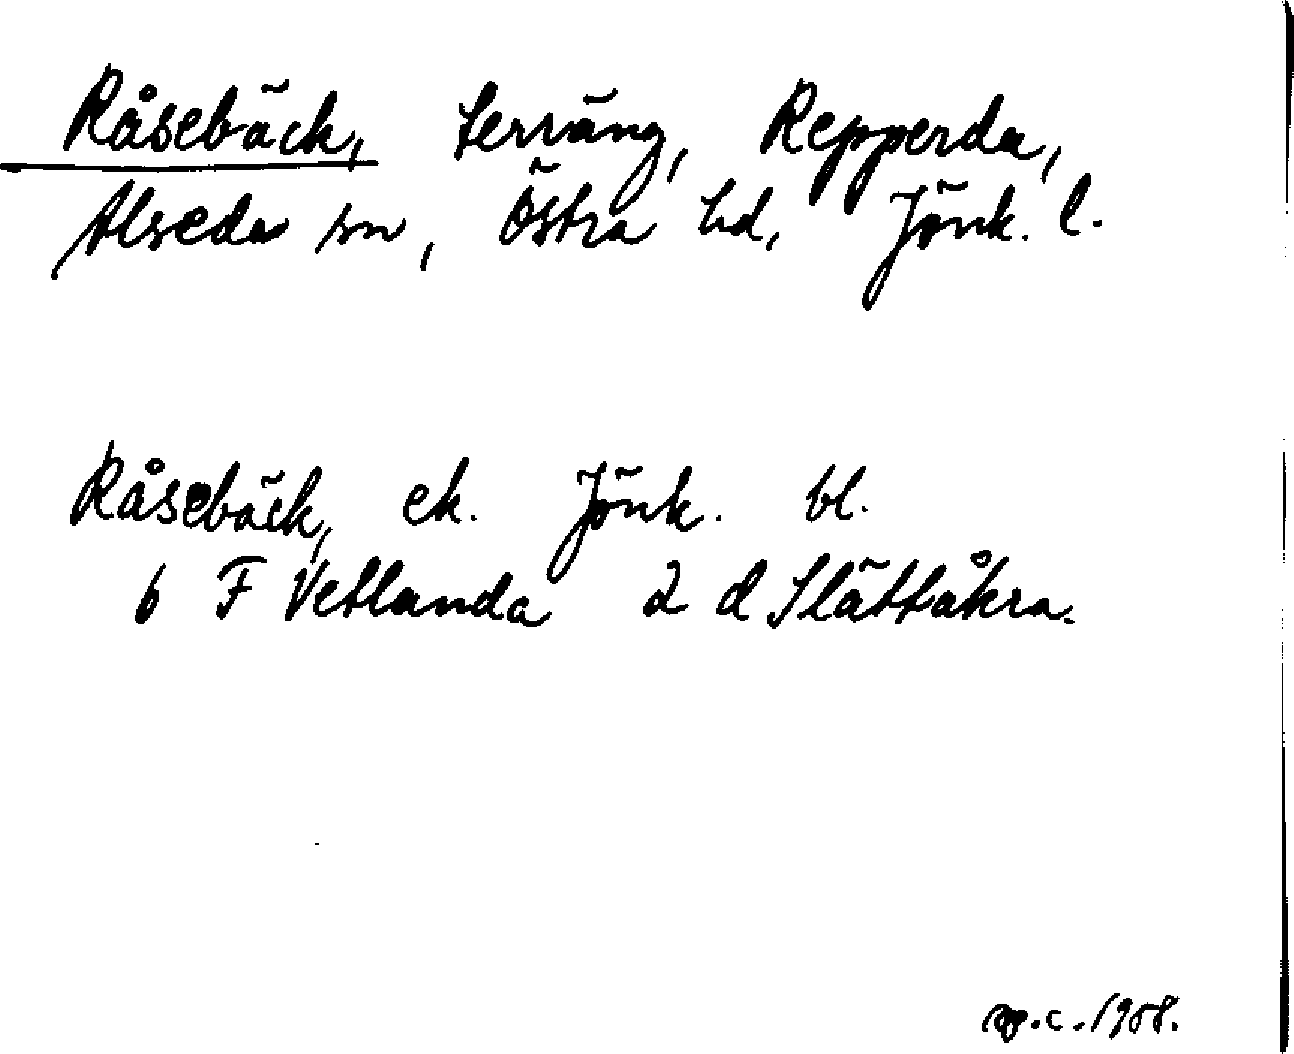 Råsebäck, terräng, Repperda,
Alseda sn, Östra hd, Jönk. l.
Råsebäck, ek. Jönk. bl.
6 F Vetlanda 2 d Slättåkra.
1958.